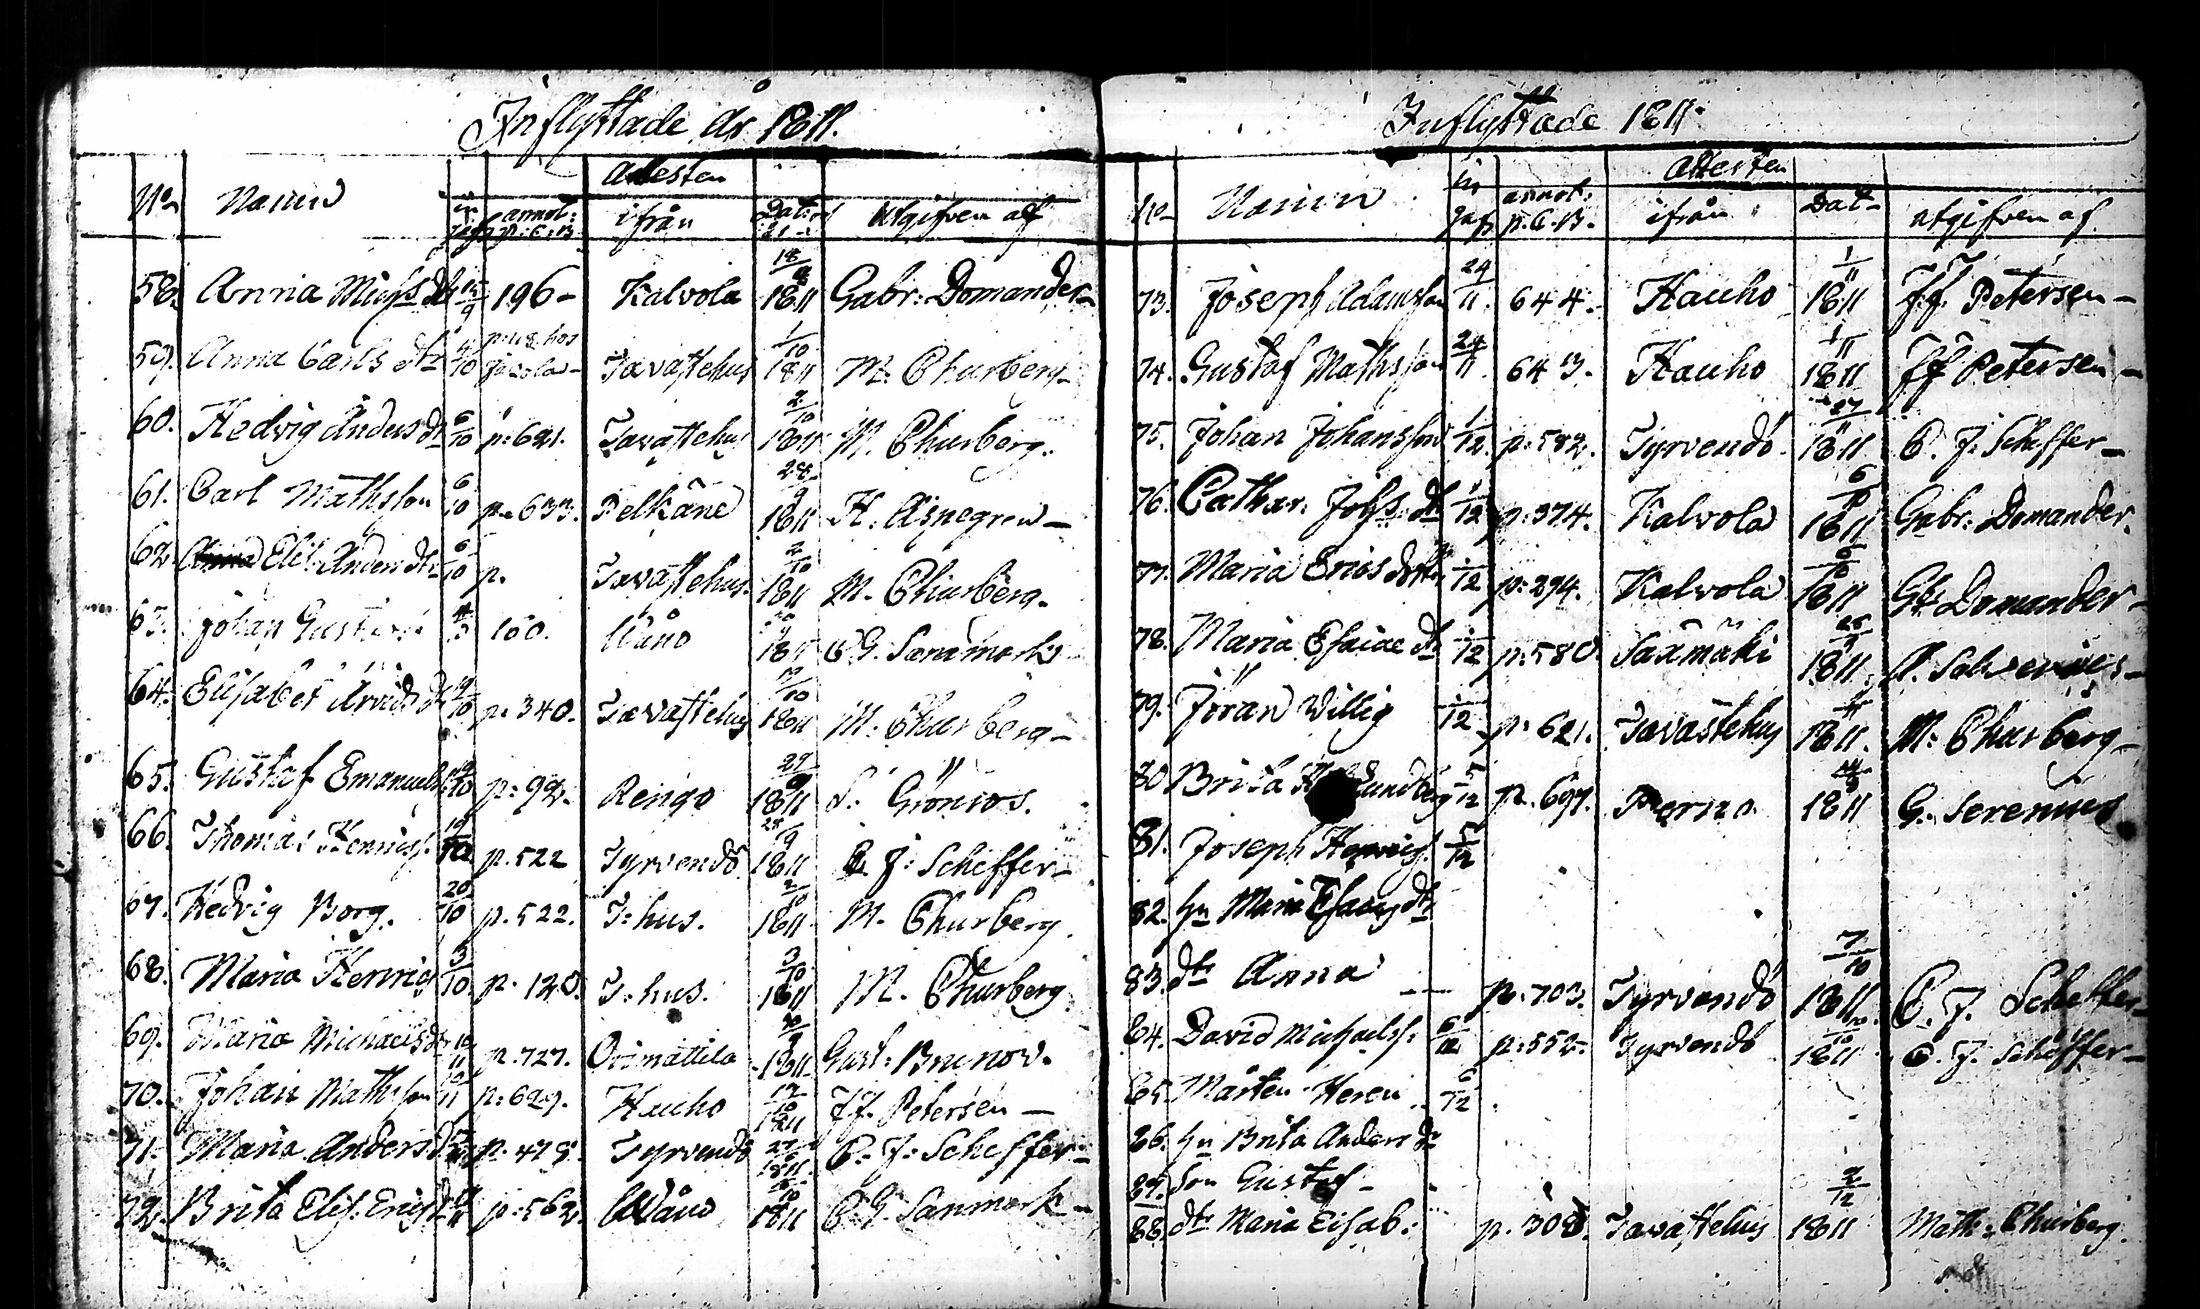 Inflyttade år 1811.
No Namn in gaf annot: p: C: B attesten ifrån Dat: utgifven af
58. Anna Michs dr 15/9 196- Kalvola 18/9 1811 Gabr: Domander-
59. Anna Carls dr 4/10 Tavastehus 1/10 1811 M. Churberg-
60. Hedvig Anders dr 6/10 p: 621. Tavastehus 2/10 1811 M. Churberg.
61. Carl Mathsson 6/10 p. 633. Pelkäne 28/9 1811 H. Asnegren-
62. Elis. Anders dr 6/10 p. Tavastehus 2/10 1811 M. Churberg.
63. Johan 160. Wåno C G. Sanmark
64. Elisabet Arvids dr p. 340. Tavastehus 19/10 1811 M: Churberg-
65. Gustaf Emanuels p: 92. Rengo 29/9 1811 Grönros.
66. Thomas Henricss. 19/10 p. 522 Tyrvendö 28/9 1811 C. J: Scheffer-
67. Hedvig Borg. 20/10 p. 522. T: hus. 2/10 1811 M. Churberg.
68. Maria Henrics 3/10. p. 120. T: hus. 3/10 1811 M. Churberg.
69. Maria Michaelsdr p. 727. Orimattila 1811 Gust: Brunov.
70. Johan Mathsson p: 629. Hauho 17/10 1811 J J. Petersen-
71. Maria Anders d p. 475. Tyrvendö 1811 C. J: Scheffer-
72. Brita Elis. Erics p: 562. Wåno 1811 C. G. Sanmark-
Inflyttade 1811.
No Namn in gaf annot: p. C. B. attesten ifrån Dat- utgifven af
73. Joseph Adamsson 24/11. 644. Hauho 1/11 1811 J. J. Petersen-
74. Gustaf Mathsson 24/11 643. Hauho 1/11 1811 J J Petersen-
75. Johan Johansson 1/12. p: 582. Tyrvendö 27/11 1811 C. J. Scheffer-
76. Cathar. Johs: dr 1/12 p: 374. Kalvola 1811 Gabr: Domander.
77. Maria Erics dotter 1/12 p: 294. Kalvola 1811 Domander-
78. Maria Esaiae dr 1/12 p: 580. Saxmäki 1811.
79. Jöran Willig 1/12 p: 621. Tavastehus 1811. M: Churberg-
80. Brita 5/12 p. 697. Perno 1811 G. Serenius
81. Joseph Henrics. 5/12
82. hu Maria Esaiæ dr
83. dr Anna p: 703. Tyrvendö 7/10 1811. C. J. Scheffer-
84. David Michaelss: 6/12 p: 552- Tyrvendö 1811 C. J. Scheffer-
85. Mårten Heren 6/12
86. hu Brita Anders dr
87. son Gustaf-
88. dr Maria Elisab: p. 308. Tavastehus 2/12 1811 Math: Churberg.